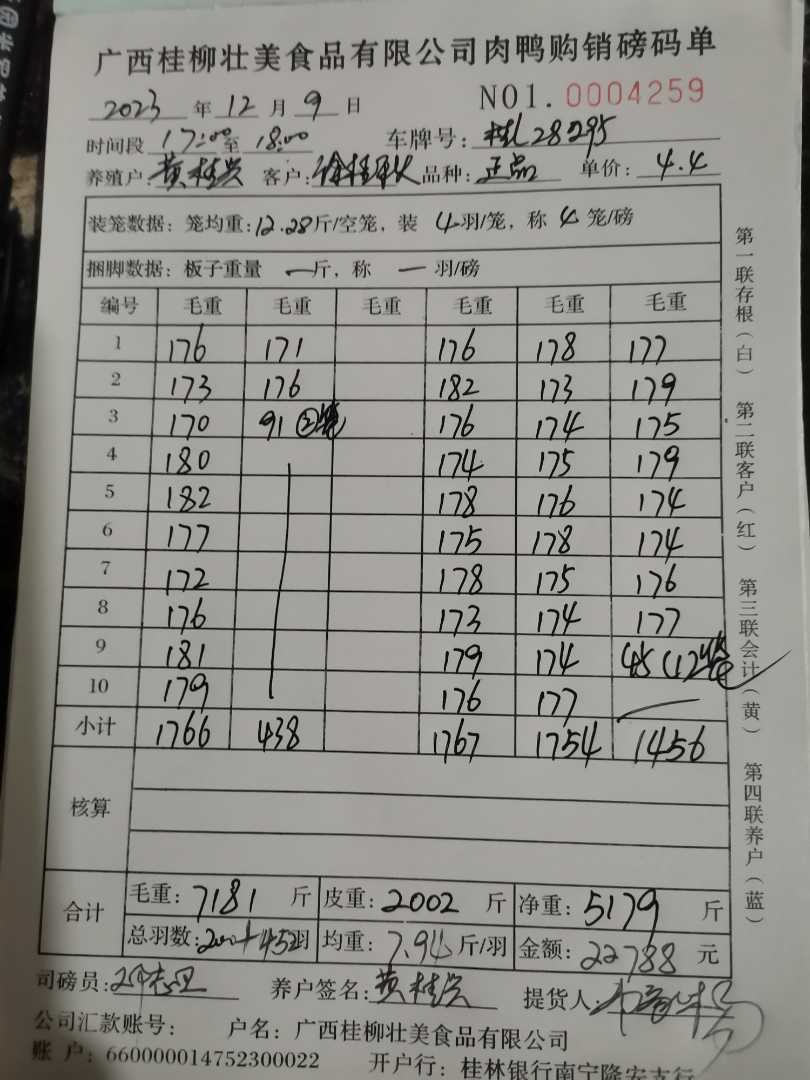 广西桂柳壮美食品有限公司肉鸭购销磅码单
2023 年 12 月 9 日 NO1. 0004259
时间段 17:00 至 18:00 车牌号: 桂L28295
养殖户: 黄桂兴 客户: 品种: 正品 单价: 4.4
装笼数据: 笼均重: 12.28 斤/空笼, 装 4 羽/笼, 称 4 笼/磅
捆脚数据: 板子重量 一 斤, 称 一 羽/磅
编号 毛重 毛重 毛重 毛重 毛重 毛重
1 176 171 176 178 177
2 173 176 182 173 179
3 170 91 ② 176 174 175
4 180 174 175 179
5 182 178 176 174
6 177 175 178 174
7 172 178 175 176
8 176 173 174 177
9 181 179 174 45 (1)
10 179 176 177
小计 1766 438 1767 1754 1456
核算
合计 毛重: 7181 斤 皮重: 2002 斤 净重: 5179 斤
总羽数: 羽 均重: 7.94 斤/羽 金额: 22788 元
司磅员: 养户签名: 黄桂兴 提货人:
公司汇款账号: 户名: 广西桂柳壮美食品有限公司
账 户: 660000014752300022 开户行: 桂林银行南宁隆安支行
第一联存根(白) 第二联客户(红) 第三联会计(黄) 第四联养户(蓝)